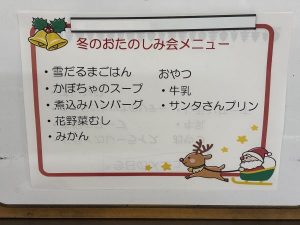 冬のおたのしみ会メニュー
・雪だるまごはん
・かぼちゃのスープ
・煮込みハンバーグ
・花野菜むし
・みかん
おやつ
・牛乳
・サンタさんプリン